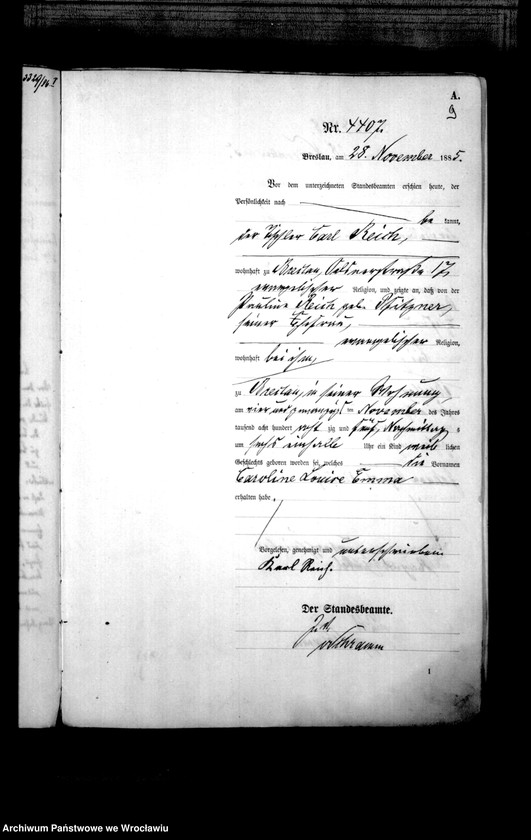 3329/86 I
A.
9
Nr. 4407.
Breslau, am 28. November 1885.
Vor dem unterzeichneten Standesbeamten erschien heute, der
Persönlichkeit nach
be kannt,
der Tischler Carl Reich,
wohnhaft zu Breslau, 17
evangelischer Religion, und zeigte an, daß von der
Pauline Reich geb. Pfitzner,
seiner Ehefrau,
evangelischer Religion,
wohnhaft bei ihm,
zu Breslau, in seiner Wohnung
am vier und zwanzigsten November des Jahres
tausend acht hundert acht zig und fünf, Nachmittag s
um sechs einhalb Uhr ein Kind weib lichen
Geschlechts geboren worden sei, welches die Vornamen
Caroline Louise Emma
erhalten habe.
Vorgelesen, genehmigt und unterschrieben
Karl Reich.
Der Standesbeamte.
Archiwum Państwowe we Wrocławiu